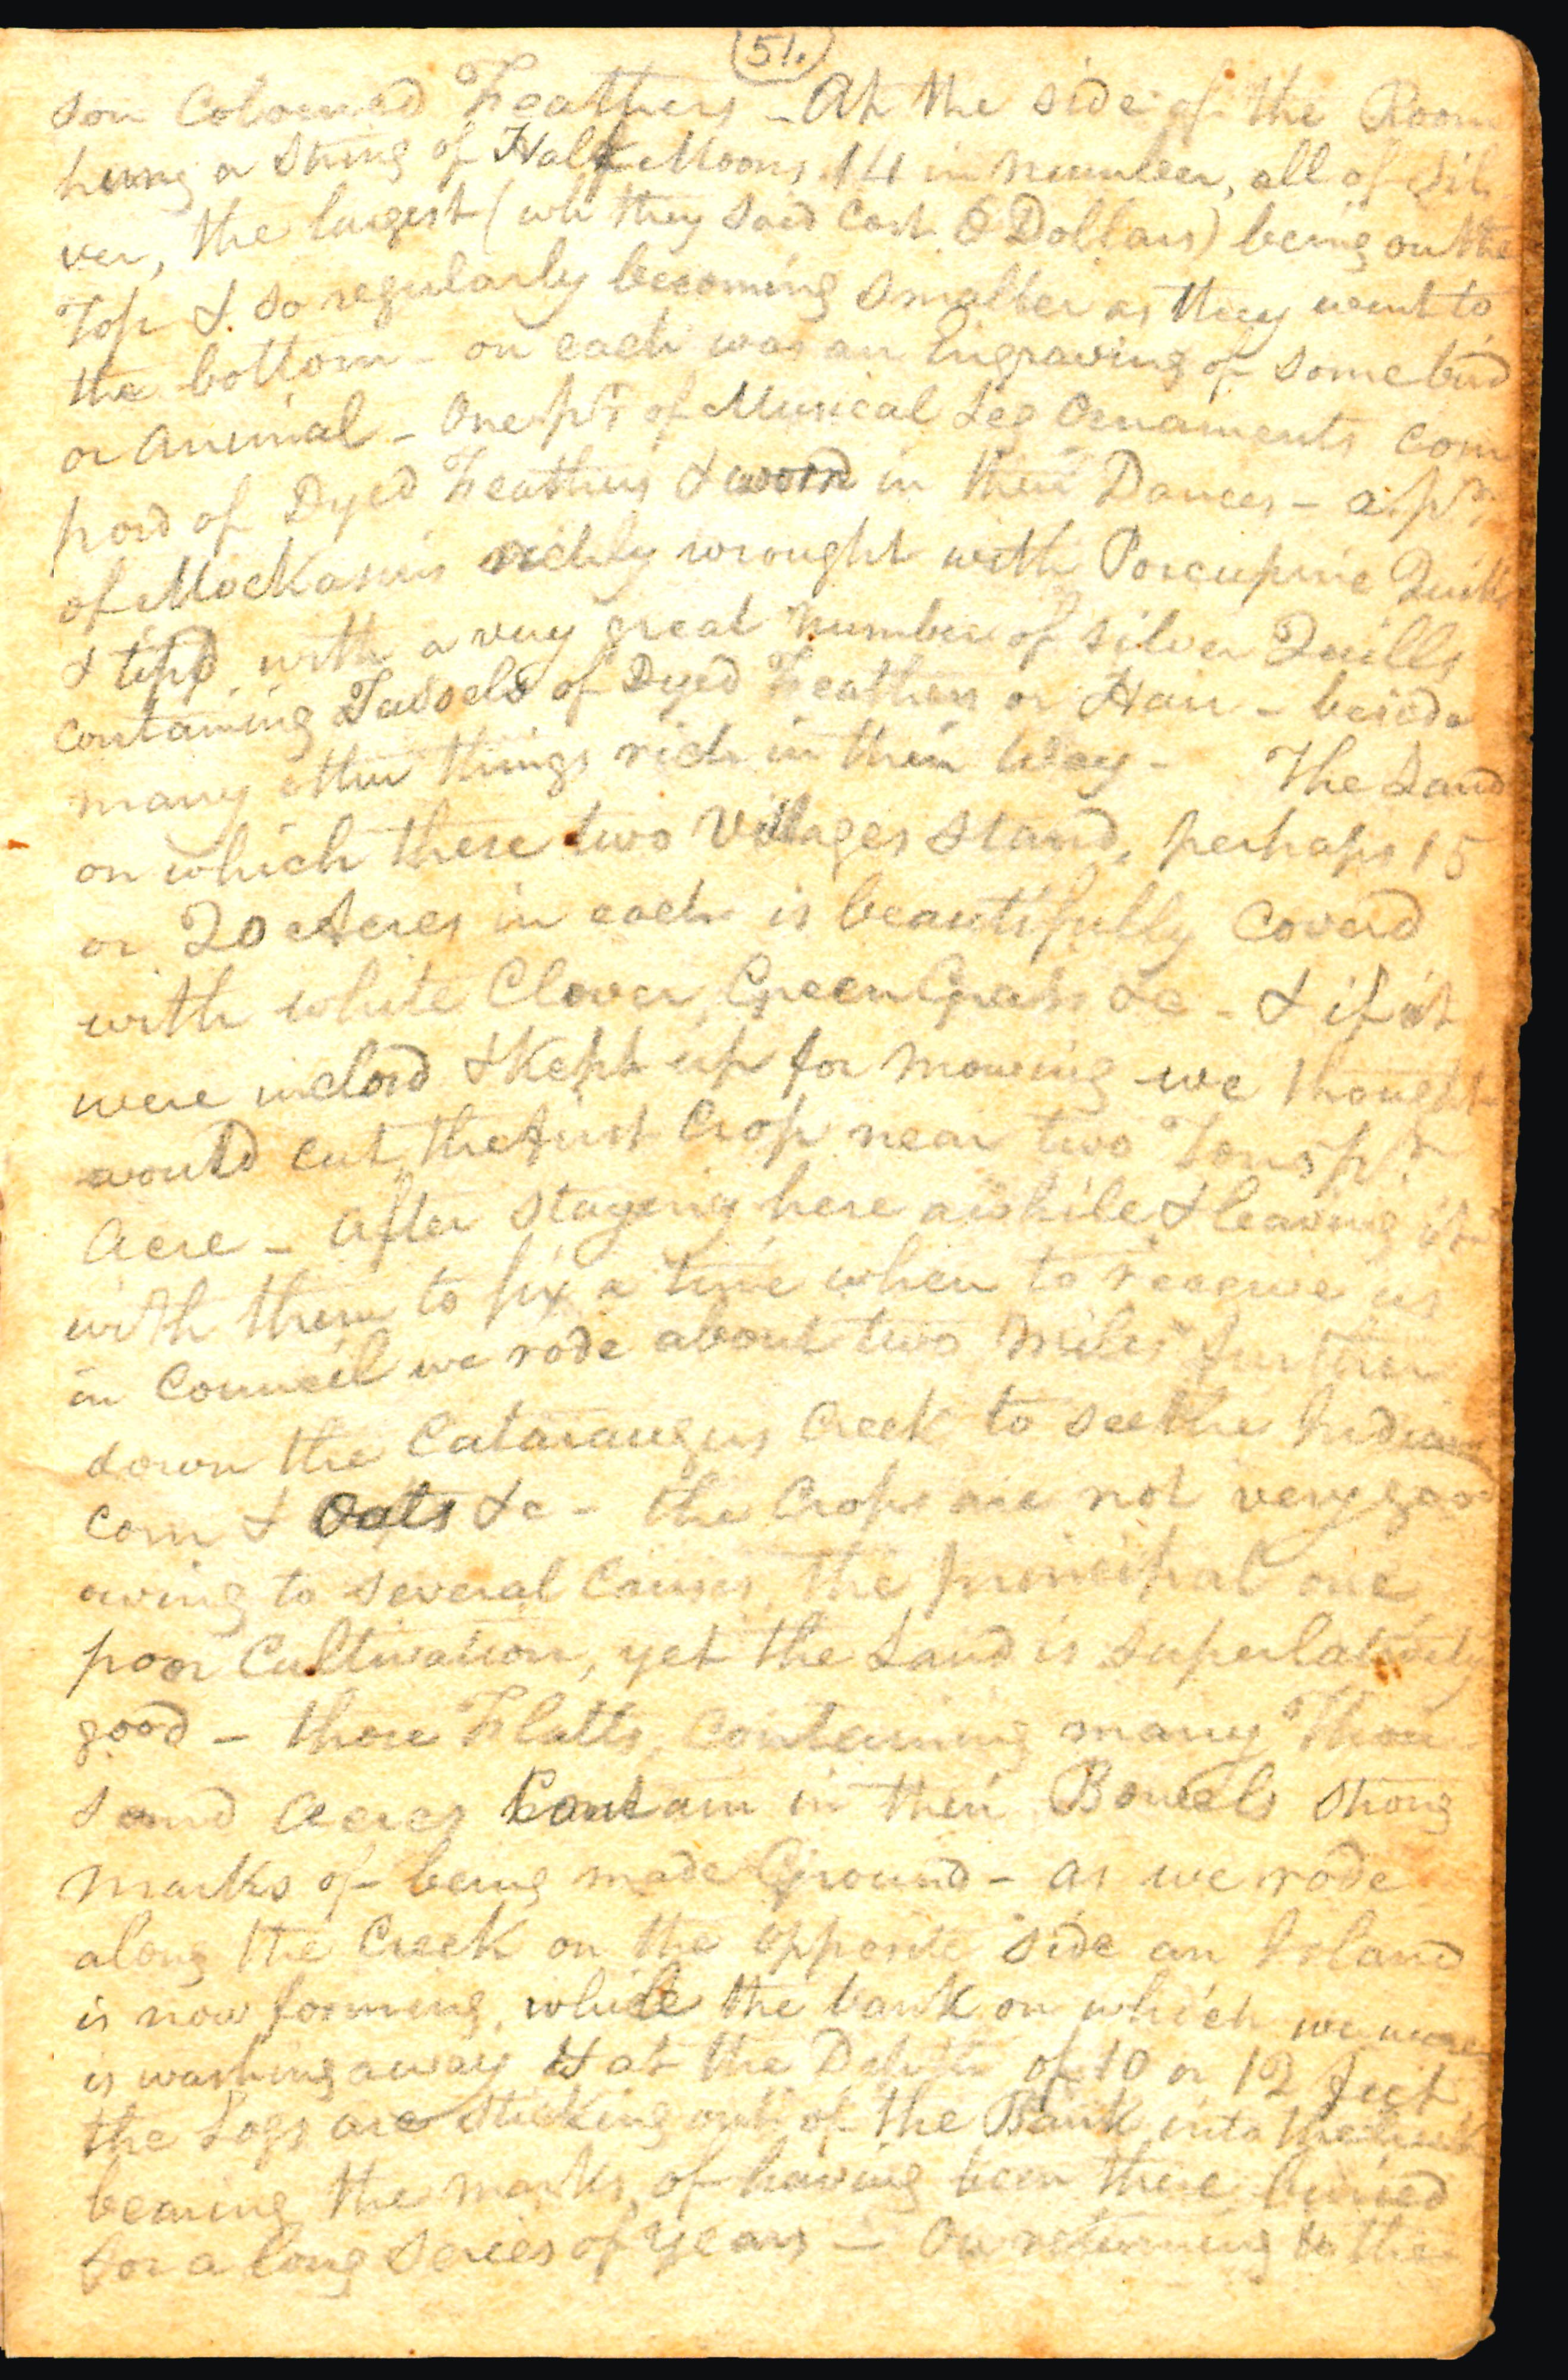 51.
son Coloured Feathers - At the side of the Room
hung a String of Half Moons 14 in number, all of Sil
ver, the largest (wh they said cost 8 Dollars) being on the
Top & so regularly becoming smaller as they went to
the bottom - on each was an Engraving of some bird
or animal - One pr of Musical Leg Ornaments com
posd of Dyed Feathers & worn in their Dances - a pr
of Mockasins richly wrought with Porcupine Quills
& tipd with a very great number of silver Quills
containing Tassels of Dyed Feathers or Hair - beside
many other things rich in their Way - The Land
on which these two Villages stand, perhaps 15
or 20 Acres in each is beautifully Coverd
with white Clover, Green Grass &c - & if it
were inclosd & Kept up for mowing we thought
would cut the first Crop near two Tons pr
Acre - After staying here awhile & leaving it
with them to fix a time when to receive us
in Council we rode about two Miles further
down the Cataraugus Creek to see the Indians
Corn & Oats &c - the Crops are not very good
owing to several Causes, the principal one
poor Cultivation, yet the Land is superlatively
good - those Flatts, containing many Thou
sand Acres Contain in their Bowels strong
marks of being made Ground - as we rode
along the Creek on the opposite side an Island
is now forming, while the bank on which we were
is washing away & at the Depth of 10 or 12 feet
the Logs are sticking out of the Bank into the Creek
bearing the marks of having been there buried
for a long Series of Years - On returning to the